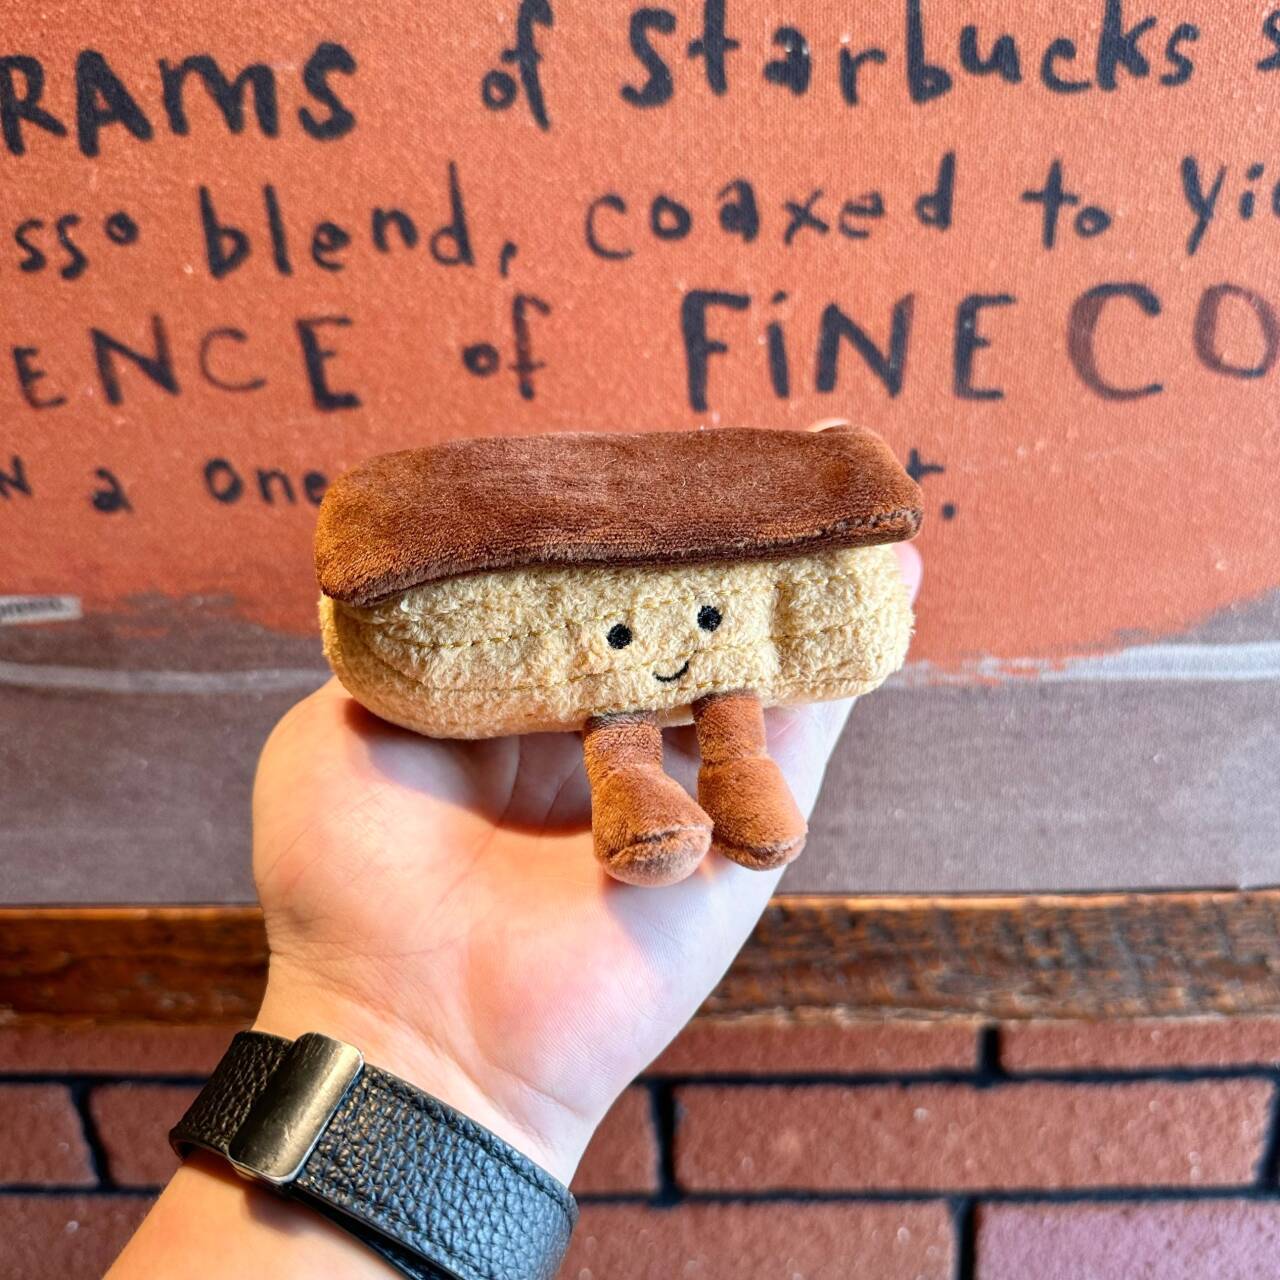 RAMS of Starbucks s
sso blend, coaxed to yi
ENCE of FINE CO
N a one r.